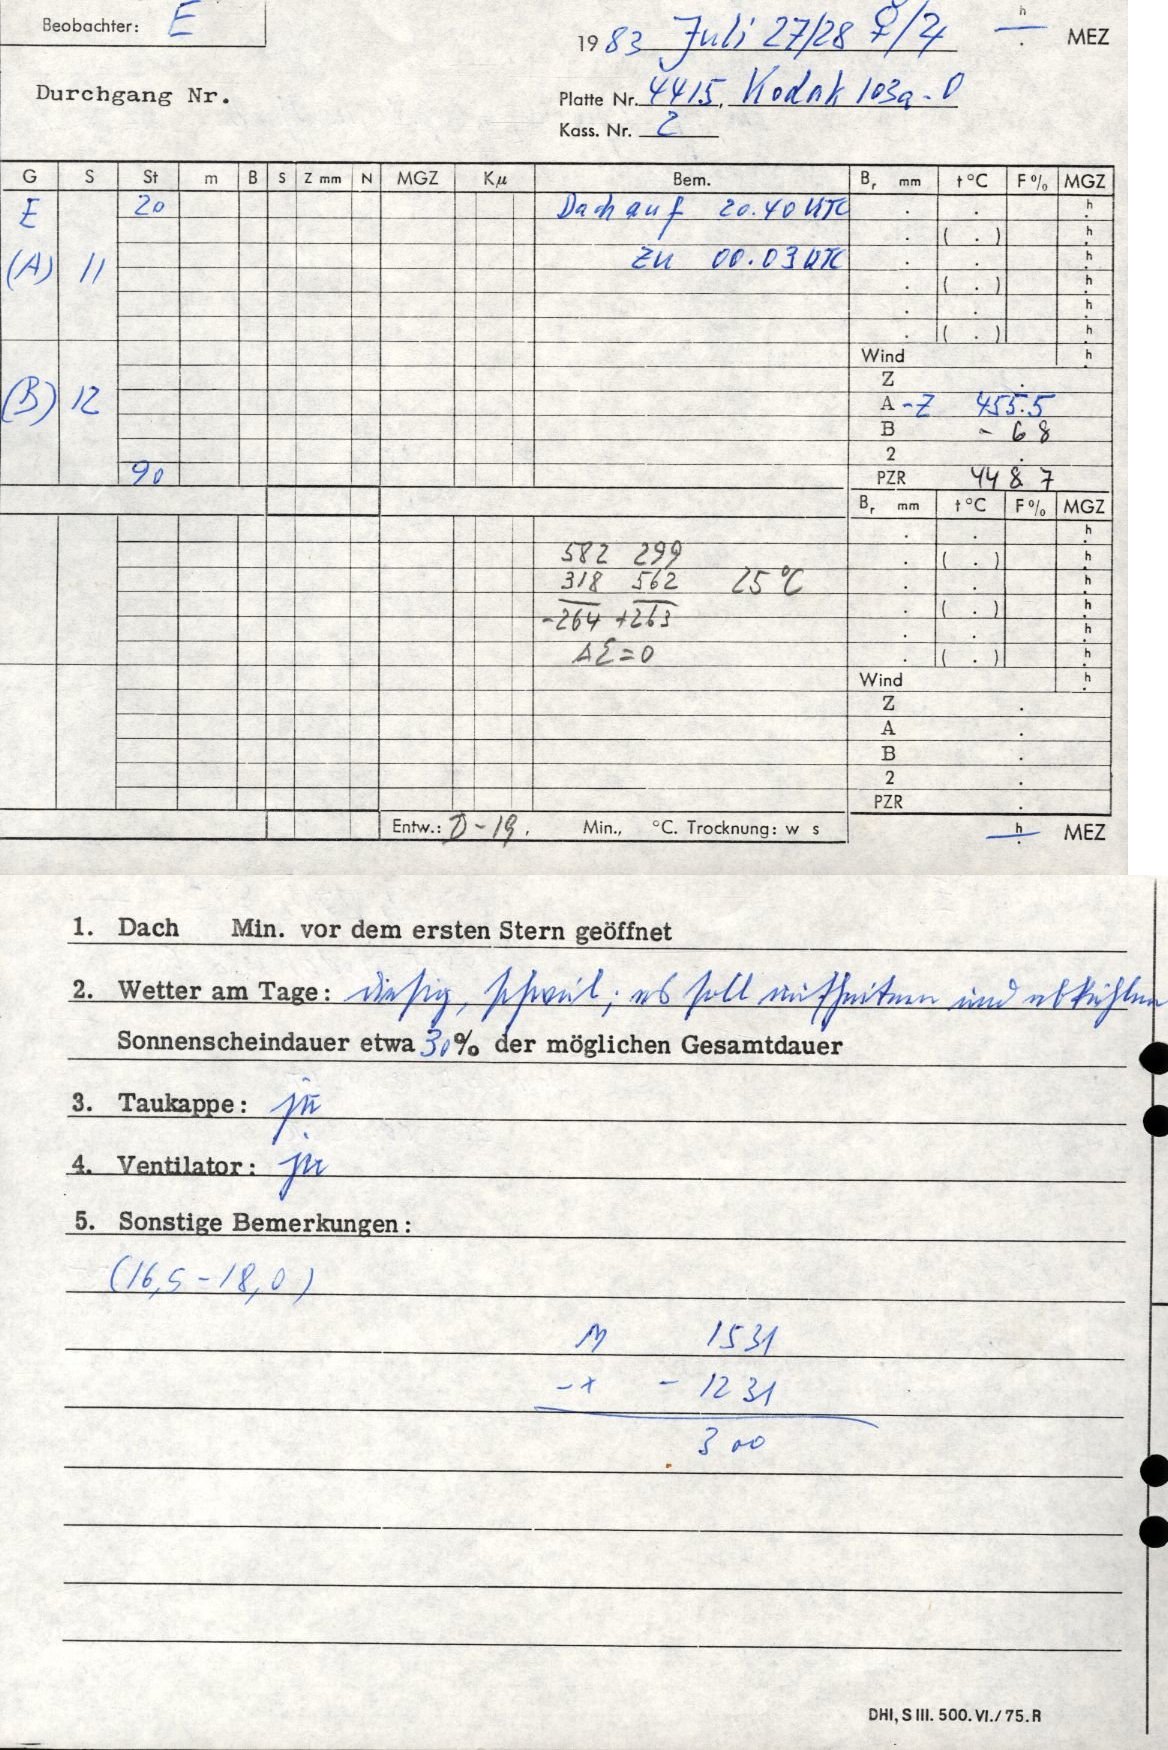 Beobachter: E
1983 Juli 27/28 ☿/♃ — h . MEZ
Durchgang Nr.
Platte Nr. 4415, Kodak 103a-O
Kass. Nr. 2
G S St m B S Z mm N MGZ Kμ Bem. Br mm t °C F% MGZ
E 20 Dach auf 20.40 UTC . . h
. ( . ) h
(A) 11 zu 00.03 UTC . . h
. ( . ) h
. . h
. ( . ) h
Wind h
Z .
(B) 12 A -Z 455.5
B - 68
2 .
90 PZR 4487
Br mm t °C F% MGZ
. . h
582 299 . ( . ) h
318 562 25 °C . . h
-264 +263 . ( . ) h
. . h
ΔΣ=0 . ( . ) h
Wind h
Z .
A .
B .
2 .
PZR .
Entw.: D-19, Min., °C. Trocknung: w s
— h . MEZ
1. Dach Min. vor dem ersten Stern geöffnet
2. Wetter am Tage: diesig, schwül; es soll aufheitern und abkühlen
Sonnenscheindauer etwa 30% der möglichen Gesamtdauer
3. Taukappe: ja
4. Ventilator: ja
5. Sonstige Bemerkungen:
(16,5-18,0)
M 1531
-x - 1231
300
DHI, S III. 500. VI./75. R